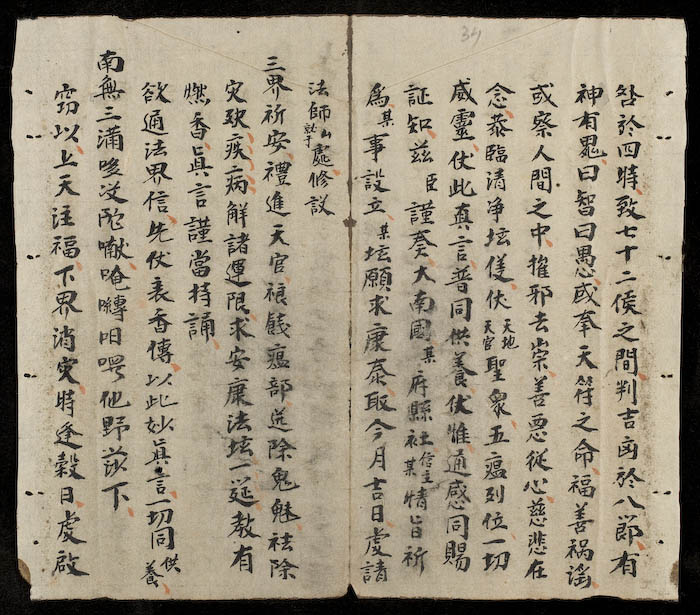 34
咎於四時致七十二侯之間判吉凶於八節有
神有鬼曰智曰愚或奉天符之命福善祸滛
或察人間之中摧邪去崇善惡従心慈悲在
念恭臨清净坛伏天地天官聖衆五瘟列位一切
威靈伏此真言普同供養伏惟通感同賜
証知兹臣謹奏大南國某府縣社某信主情旨祈
爲某事設立某坛願求康泰取今月吉日虔請
法師於山處修設
三界祈安禮進天官禳餞瘟部送除鬼魅祛除
灾疾病解諸運限求安康法坛一筵教有
燃香真言謹當持誦
欲通法界信先伏衷香傳以此妙真言一切同供養
南無三滿哆沒陀唵嚩日囉他野莎下
窃以上天注福下界消灾時逢穀日虔啟